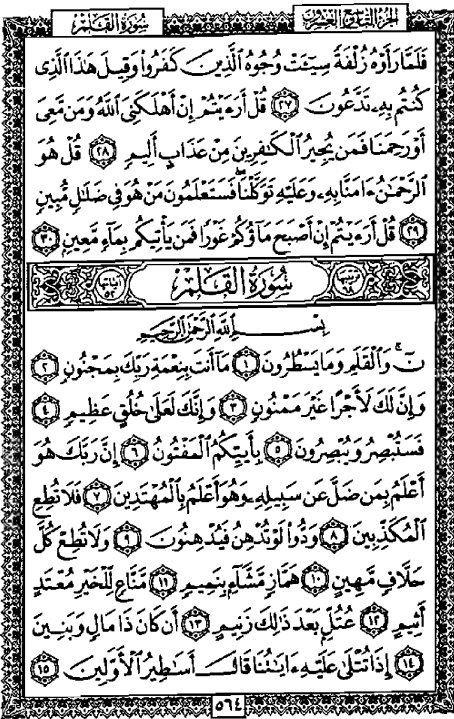 الجزء التاسع والعشرون
سورة القلم
فَلَمَّا رَأَوْهُ زُلْفَةً سِيٓـَٔتْ وُجُوهُ ٱلَّذِينَ كَفَرُوا۟ وَقِيلَ هَٰذَا ٱلَّذِى
كُنتُم بِهِۦ تَدَّعُونَ ٢٧ قُلْ أَرَءَيْتُمْ إِنْ أَهْلَكَنِىَ ٱللَّهُ وَمَن مَّعِىَ
أَوْ رَحِمَنَا فَمَن يُجِيرُ ٱلْكَٰفِرِينَ مِنْ عَذَابٍ أَلِيمٍ ٢٨ قُلْ هُوَ
ٱلرَّحْمَٰنُ ءَامَنَّا بِهِۦ وَعَلَيْهِ تَوَكَّلْنَا ۖ فَسَتَعْلَمُونَ مَنْ هُوَ فِى ضَلَٰلٍ مُّبِينٍ
٢٩ قُلْ أَرَءَيْتُمْ إِنْ أَصْبَحَ مَآؤُكُمْ غَوْرًا فَمَن يَأْتِيكُم بِمَآءٍ مَّعِينٍ ٣٠
سُورَةُ الْقَلَمِ
آياتها ٥٢
بِسْمِ ٱللَّهِ ٱلرَّحْمَٰنِ ٱلرَّحِيمِ
نٓ ۚ وَٱلْقَلَمِ وَمَا يَسْطُرُونَ ١ مَآ أَنتَ بِنِعْمَةِ رَبِّكَ بِمَجْنُونٍ ٢
وَإِنَّ لَكَ لَأَجْرًا غَيْرَ مَمْنُونٍ ٣ وَإِنَّكَ لَعَلَىٰ خُلُقٍ عَظِيمٍ ٤
فَسَتُبْصِرُ وَيُبْصِرُونَ ٥ بِأَييِّكُمُ ٱلْمَفْتُونُ ٦ إِنَّ رَبَّكَ هُوَ
أَعْلَمُ بِمَن ضَلَّ عَن سَبِيلِهِۦ وَهُوَ أَعْلَمُ بِٱلْمُهْتَدِينَ ٧ فَلَا تُطِعِ
ٱلْمُكَذِّبِينَ ٨ وَدُّوا۟ لَوْ تُدْهِنُ فَيُدْهِنُونَ ٩ وَلَا تُطِعْ كُلَّ
حَلَّافٍ مَّهِينٍ ١٠ هَمَّازٍ مَّشَّآءٍۭ بِنَمِيمٍ ١١ مَّنَّاعٍ لِّلْخَيْرِ مُعْتَدٍ
أَثِيمٍ ١٢ عُتُلٍّۭ بَعْدَ ذَٰلِكَ زَنِيمٍ ١٣ أَن كَانَ ذَا مَالٍ وَبَنِينَ
١٤ إِذَا تُتْلَىٰ عَلَيْهِ ءَايَٰتُنَا قَالَ أَسَٰطِيرُ ٱلْأَوَّلِينَ ١٥
٥٦٤